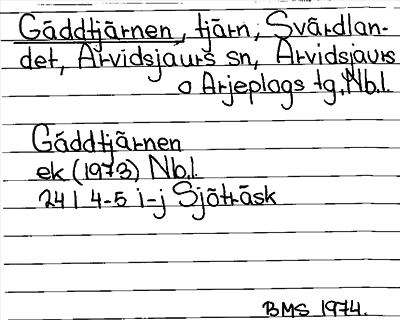 Gäddtjärnen, tjärn, Svärdlan-
det, Arvidsjaurs sn, Arvidsjaurs
o Arjeplogs tg, Nb.l.
Gäddtjärnen
ek (1973) Nb.l.
24 I 4-5 i-j Sjöträsk
BMS 1974.